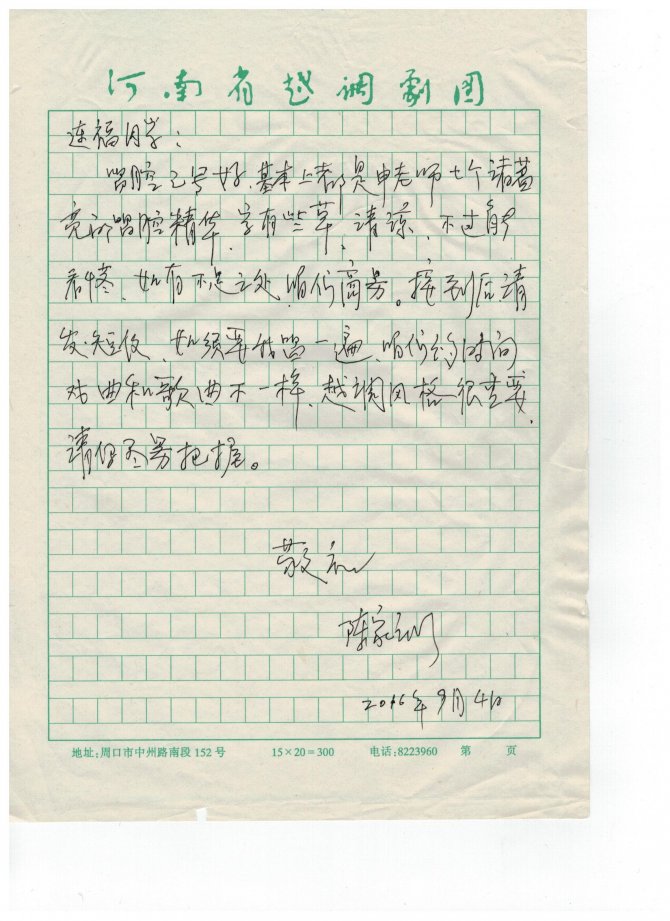 河南省越調劇团
连福同学:
唱腔已写好,基本上都是申老师七个诸葛
亮的唱腔精华,字有些草,请谅,不过能
看懂,如有不足之处,咱们商易。接到后请
发短仪,如须要我唱一遍,咱们约时间
戏曲和歌曲不一样,越调风格很重要,
请你尽易把握。
敬礼
陈家训
2016年9月4日
地址:周口市中州路南段 152 号 15×20=300 电话:8223960 第 页